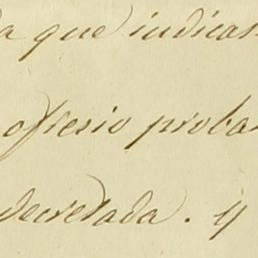 a que indican
ofresio proba
decretada. y